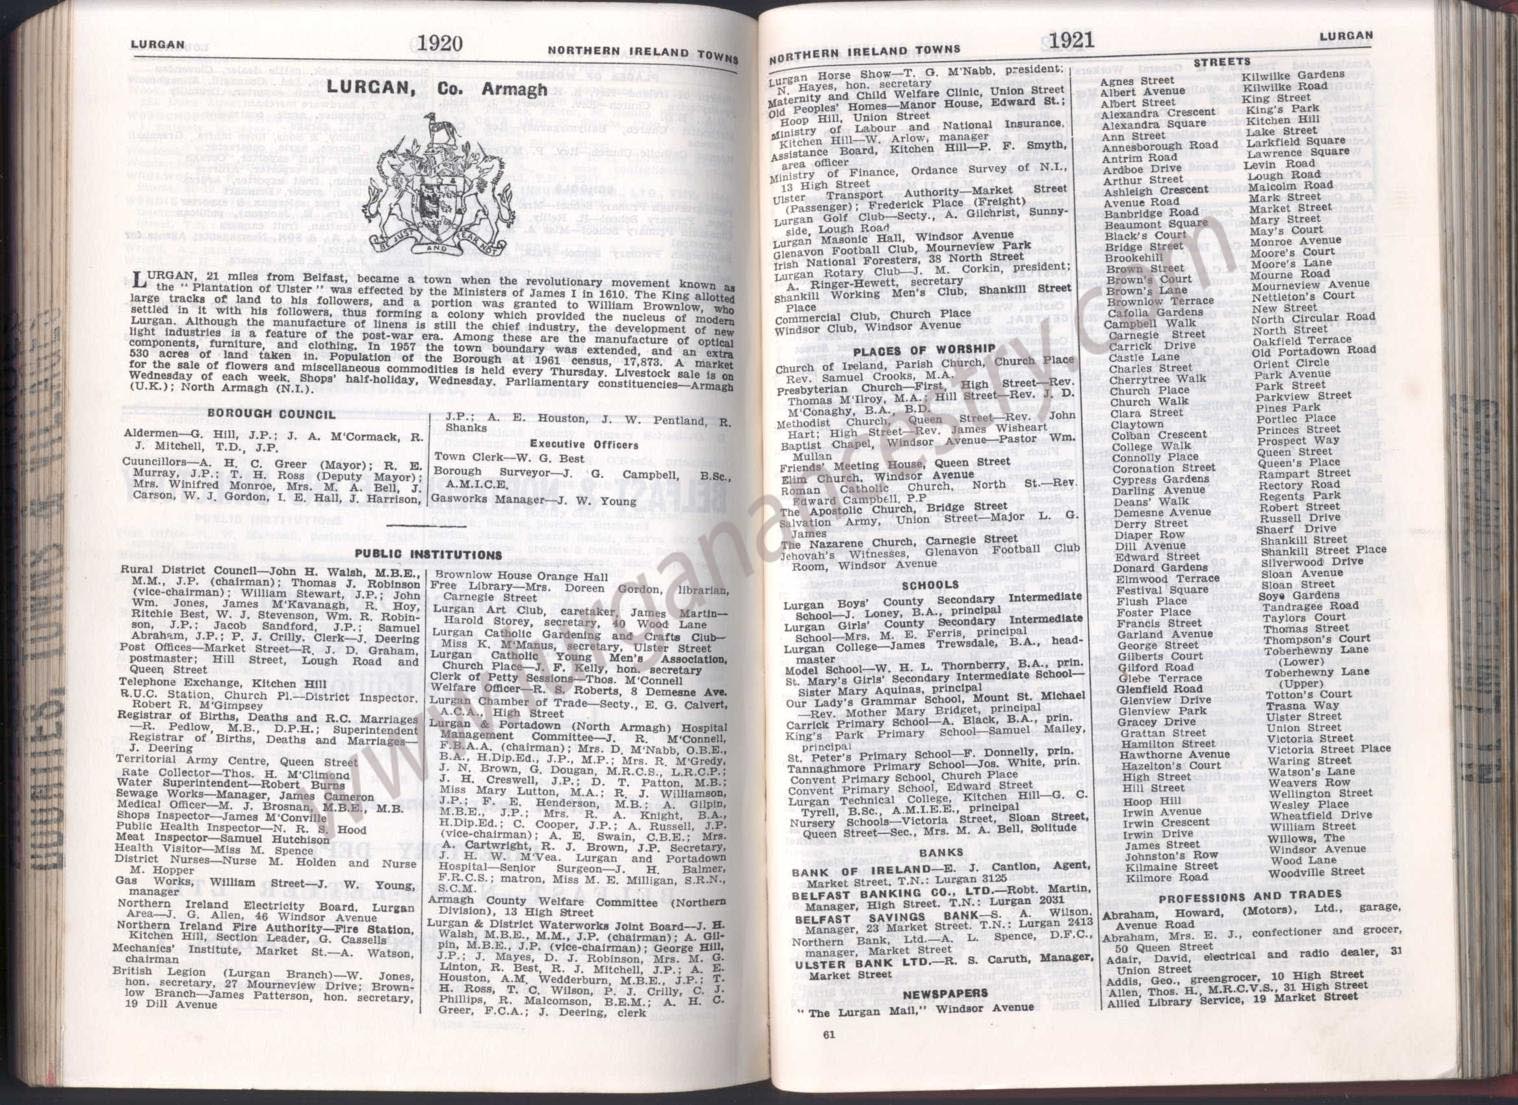 LURGAN
1920
NORTHERN IRELAND TOWNS
LURGAN, Co. Armagh
BE JUST AND FEAR NOT
LURGAN, 21 miles from Belfast, became a town when the revolutionary movement known as
the "Plantation of Ulster" was effected by the Ministers of James I in 1610. The King allotted
large tracks of land to his followers, and a portion was granted to William Brownlow, who
settled in it with his followers, thus forming a colony which provided the nucleus of modern
Lurgan. Although the manufacture of linens is still the chief industry, the development of new
light industries is a feature of the post-war era. Among these are the manufacture of optical
components, furniture, and clothing. In 1957 the town boundary was extended, and an extra
530 acres of land taken in. Population of the Borough at 1961 census, 17,873. A market
for the sale of flowers and miscellaneous commodities is held every Thursday. Livestock sale is on
Wednesday of each week. Shops' half-holiday, Wednesday. Parliamentary constituencies—Armagh
(U.K.); North Armagh (N.I.).
BOROUGH COUNCIL
Aldermen—G. Hill, J.P.; J. A. M'Cormack, R.
J. Mitchell, T.D., J.P.
Cuuncillors—A. H. C. Greer (Mayor); R. E.
Murray, J.P.; T. H. Ross (Deputy Mayor);
Mrs. Winifred Monroe, Mrs. M. A. Bell, J.
Carson, W. J. Gordon, I. E. Hall, J. Harrison,
J.P.; A. E. Houston, J. W. Pentland, R.
Shanks
Executive Officers
Town Clerk—W. G. Best
Borough Surveyor—J. G. Campbell, B.Sc.,
A.M.I.C.E.
Gasworks Manager—J. W. Young
PUBLIC INSTITUTIONS
Rural District Council—John H. Walsh, M.B.E.,
M.M., J.P. (chairman); Thomas J. Robinson
(vice-chairman); William Stewart, J.P.; John
Wm. Jones, James M'Kavanagh, R. Hoy,
Ritchie Best, W. J. Stevenson, Wm. R. Robin-
son, J.P.; Jacob Sandford, J.P.; Samuel
Abraham, J.P.; P. J. Crilly. Clerk—J. Deering
Post Offices—Market Street—R. J. D. Graham,
postmaster; Hill Street, Lough Road and
Queen Street
Telephone Exchange, Kitchen Hill
R.U.C. Station, Church Pl.—District Inspector.
Robert R. M'Gimpsey
Registrar of Births, Deaths and R.C. Marriages
—R. Pedlow, M.B., D.P.H.; Superintendent
Registrar of Births, Deaths and Marriages—
J. Deering
Territorial Army Centre, Queen Street
Rate Collector—Thos. H. M'Climond
Water Superintendent—Robert Burns
Sewage Works—Manager, James Cameron
Medical Officer—M. J. Brosnan, M.B.E., M.B.
Shops Inspector—James M'Conville
Public Health Inspector—N. R. S. Hood
Meat Inspector—Samuel Hutchison
Health Visitor—Miss M. Spence
District Nurses—Nurse M. Holden and Nurse
M. Hopper
Gas Works, William Street—J. W. Young,
manager
Northern Ireland Electricity Board, Lurgan
Area—J. G. Allen, 46 Windsor Avenue
Northern Ireland Fire Authority—Fire Station,
Kitchen Hill, Section Leader, G. Cassells
Mechanics' Institute, Market St.—A. Watson,
chairman
British Legion (Lurgan Branch)—W. Jones,
hon. secretary, 27 Mourneview Drive; Brown-
low Branch—James Patterson, hon. secretary,
19 Dill Avenue
Brownlow House Orange Hall
Free Library—Mrs. Doreen Gordon, librarian,
Carnegie Street
Lurgan Art Club, caretaker, James Martin—
Harold Storey, secretary, 40 Wood Lane
Lurgan Catholic Gardening and Crafts Club—
Miss K. M'Manus, secretary, Ulster Street
Lurgan Catholic Young Men's Association,
Church Place—J. F. Kelly, hon. secretary
Clerk of Petty Sessions—Thos. M'Connell
Welfare Officer—R. T. Roberts, 8 Demesne Ave.
Lurgan Chamber of Trade—Secty., E. G. Calvert,
A.C.A., High Street
Lurgan & Portadown (North Armagh) Hospital
Management Committee—J. R. M'Connell,
F.B.A.A. (chairman); Mrs. D. M'Nabb, O.B.E.,
B.A., H.Dip.Ed., J.P., M.P.; Mrs. R. M'Gredy,
J. N. Brown, G. Dougan, M.R.C.S., L.R.C.P.;
J. H. Creswell, J.P.; D. T. Patton, M.B.;
Miss Mary Lutton, M.A.; R. J. Williamson,
J.P.; F. E. Henderson, M.B.; A. Gilpin,
M.B.E., J.P.; Mrs. R. A. Knight, B.A.,
H.Dip.Ed.; C. Cooper, J.P.; A. Russell, J.P.
(vice-chairman); A. E. Swain, C.B.E.; Mrs.
A. Cartwright, R. J. Brown, J.P. Secretary,
J. H. W. M'Vea. Lurgan and Portadown
Hospital—Senior Surgeon—J. H. Balmer,
F.R.C.S.; matron, Miss M. E. Milligan, S.R.N.,
S.C.M.
Armagh County Welfare Committee (Northern
Division), 13 High Street
Lurgan & District Waterworks Joint Board—J. H.
Walsh, M.B.E., M.M., J.P. (chairman); A. Gil-
pin, M.B.E., J.P. (vice-chairman); George Hill,
J.P.; J. Mayes, D. J. Robinson, Mrs. M. G.
Linton, R. Best, R. J. Mitchell, J.P.; A. E.
Houston, A.M. Wedderburn, M.B.E., J.P.; T.
H. Ross, T. C. Wilson, P. J. Crilly, C. J.
Phillips, R. Malcomson, B.E.M.; A. H. C.
Greer, F.C.A.; J. Deering, clerk
NORTHERN IRELAND TOWNS
1921
LURGAN
Lurgan Horse Show—T. G. M'Nabb, president;
N. Hayes, hon. secretary
Maternity and Child Welfare Clinic, Union Street
Old Peoples' Homes—Manor House, Edward St.;
Hoop Hill, Union Street
Ministry of Labour and National Insurance.
Kitchen Hill—W. Arlow, manager
Assistance Board, Kitchen Hill—P. F. Smyth,
area officer
Ministry of Finance, Ordance Survey of N.I.,
13 High Street
Ulster Transport Authority—Market Street
(Passenger); Frederick Place (Freight)
Lurgan Golf Club—Secty., A. Gilchrist, Sunny-
side, Lough Road
Lurgan Masonic Hall, Windsor Avenue
Glenavon Football Club, Mourneview Park
Irish National Foresters, 38 North Street
Lurgan Rotary Club—J. M. Corkin, president;
A. Ringer-Hewett, secretary
Shankill Working Men's Club, Shankill Street
Place
Commercial Club, Church Place
Windsor Club, Windsor Avenue
PLACES OF WORSHIP
Church of Ireland, Parish Church, Church Place
Rev. Samuel Crooks, M.A.
Presbyterian Church—First, High Street—Rev.
Thomas M'Ilroy, M.A.; Hill Street—Rev. J. D.
M'Conaghy, B.A., B.D.
Methodist Church, Queen Street—Rev. John
Hart; High Street—Rev. James Wisheart
Baptist Chapel, Windsor Avenue—Pastor Wm.
Mullan
Friends' Meeting House, Queen Street
Elim Church, Windsor Avenue
Roman Catholic Church, North St.—Rev.
Edward Campbell, P.P
The Apostolic Church, Bridge Street
Salvation Army, Union Street—Major L. G.
James
The Nazarene Church, Carnegie Street
Jehovah's Witnesses, Glenavon Football Club
Room, Windsor Avenue
SCHOOLS
Lurgan Boys' County Secondary Intermediate
School—J. Loney, B.A., principal
Lurgan Girls' County Secondary Intermediate
School—Mrs. M. E. Ferris, principal
Lurgan College—James Trewsdale, B.A., head-
master
Model School—W. H. L. Thornberry, B.A., prin.
St. Mary's Girls' Secondary Intermediate School—
Sister Mary Aquinas, principal
Our Lady's Grammar School, Mount St. Michael
—Rev. Mother Mary Bridget, principal
Carrick Primary School—A. Black, B.A., prin.
King's Park Primary School—Samuel Malley,
principal
St. Peter's Primary School—F. Donnelly, prin.
Tannaghmore Primary School—Jos. White, prin.
Convent Primary School, Church Place
Convent Primary School, Edward Street
Lurgan Technical College, Kitchen Hill—G. C.
Tyrell, B.Sc., A.M.I.E.E., principal
Nursery Schools—Victoria Street, Sloan Street,
Queen Street—Sec., Mrs. M. A. Bell, Solitude
BANKS
BANK OF IRELAND—E. J. Cantlon, Agent,
Market Street, T.N.: Lurgan 3125
BELFAST BANKING CO., LTD.—Robt. Martin,
Manager, High Street. T.N.: Lurgan 2031
BELFAST SAVINGS BANK—S. A. Wilson,
Manager, 23 Market Street. T.N.: Lurgan 2413
Northern Bank, Ltd.—A. L. Spence, D.F.C.,
manager, Market Street
ULSTER BANK LTD.—R. S. Caruth, Manager,
Market Street
NEWSPAPERS
"The Lurgan Mail," Windsor Avenue
61
STREETS
Agnes Street
Albert Avenue
Albert Street
Alexandra Crescent
Alexandra Square
Ann Street
Annesborough Road
Antrim Road
Ardboe Drive
Arthur Street
Ashleigh Crescent
Avenue Road
Banbridge Road
Beaumont Square
Black's Court
Bridge Street
Brookehill
Brown Street
Brown's Court
Brown's Lane
Brownlow Terrace
Cafolla Gardens
Campbell Walk
Carnegie Street
Carrick Drive
Castle Lane
Charles Street
Cherrytree Walk
Church Place
Church Walk
Clara Street
Claytown
Colban Crescent
College Walk
Connolly Place
Coronation Street
Cypress Gardens
Darling Avenue
Deans' Walk
Demesne Avenue
Derry Street
Diaper Row
Dill Avenue
Edward Street
Donard Gardens
Elmwood Terrace
Festival Square
Flush Place
Foster Place
Francis Street
Garland Avenue
George Street
Gilberts Court
Gilford Road
Glebe Terrace
Glenfield Road
Glenview Drive
Glenview Park
Gracey Drive
Grattan Street
Hamilton Street
Hawthorne Avenue
Hazelton's Court
High Street
Hill Street
Hoop Hill
Irwin Avenue
Irwin Crescent
Irwin Drive
James Street
Johnston's Row
Kilmaine Street
Kilmore Road
Kilwilke Gardens
Kilwilke Road
King Street
King's Park
Kitchen Hill
Lake Street
Larkfield Square
Lawrence Square
Levin Road
Lough Road
Malcolm Road
Mark Street
Market Street
Mary Street
May's Court
Monroe Avenue
Moore's Court
Moore's Lane
Mourne Road
Mourneview Avenue
Nettleton's Court
New Street
North Circular Road
North Street
Oakfield Terrace
Old Portadown Road
Orient Circle
Park Avenue
Park Street
Parkview Street
Pines Park
Portlec Place
Princes Street
Prospect Way
Queen Street
Queen's Place
Rampart Street
Rectory Road
Regents Park
Robert Street
Russell Drive
Shaerf Drive
Shankill Street
Shankill Street Place
Silverwood Drive
Sloan Avenue
Sloan Street
Soye Gardens
Tandragee Road
Taylors Court
Thomas Street
Thompson's Court
Toberhewny Lane
(Lower)
Toberhewny Lane
(Upper)
Totton's Court
Trasna Way
Ulster Street
Union Street
Victoria Street
Victoria Street Place
Waring Street
Watson's Lane
Weavers Row
Wellington Street
Wesley Place
Wheatfield Drive
William Street
Willows, The
Windsor Avenue
Wood Lane
Woodville Street
PROFESSIONS AND TRADES
Abraham, Howard, (Motors), Ltd., garage,
Avenue Road
Abraham, Mrs. E. J., confectioner and grocer,
50 Queen Street
Adair, David, electrical and radio dealer, 31
Union Street
Addis, Geo., greengrocer, 10 High Street
Allen, Thos. H., M.R.C.V.S., 31 High Street
Allied Library Service, 19 Market Street
www.lurganancestry.com